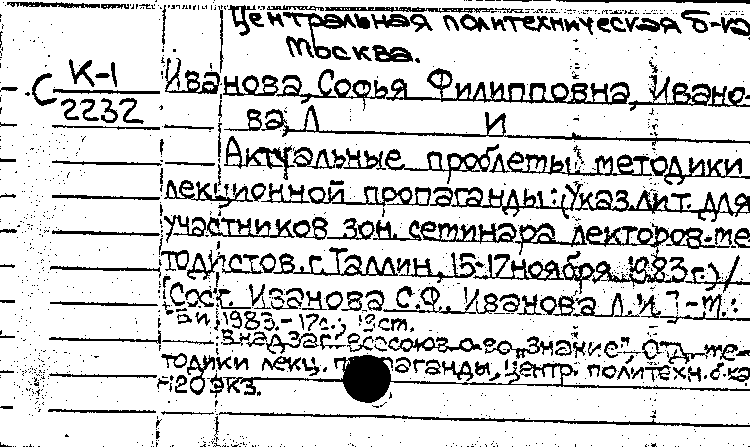 Центральная политехническая б-ка
Москва.
С К-1
2232
Иванова, Софья Филипповна, Ивано-
ва, Л И
Актуальные проблемы методики
лекционной пропаганды: (Указ. лит. для
участников зон. семинара лекторов-ме-
тодистов. г. Таллин, 15-17 ноября 1983 г.) /
[Сост. Иванова С.Ф., Иванова Л.И.] - М.:
Б.и, 1983. - 17с.; см.
В надзаг: Всесоюз. о-во „Знание", Отд. ме-
тодики лекц. пропаганды, Центр. политехн. б-ка
-120 экз.